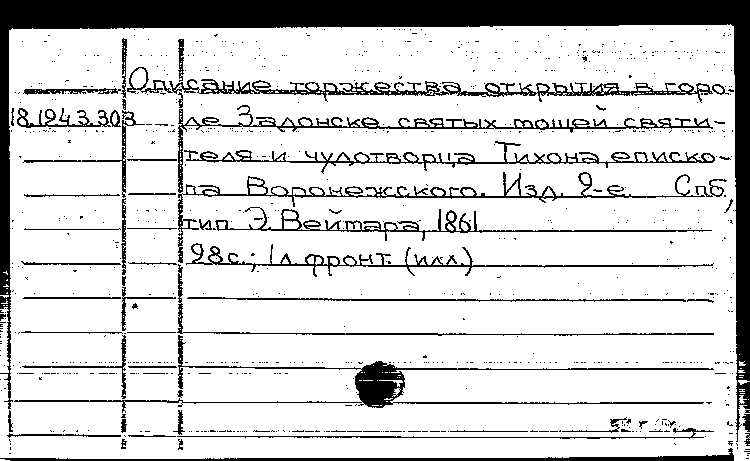 Описание торжества открытия в горо-
18.194.3.303 де Задонске святых мощей святи-
теля и чудотворца Тихона, еписко-
па Воронежского. Изд. 2-е. Спб,
тип. Э. Веймара, 1861
98с.; 1л. фронт. (илл.)